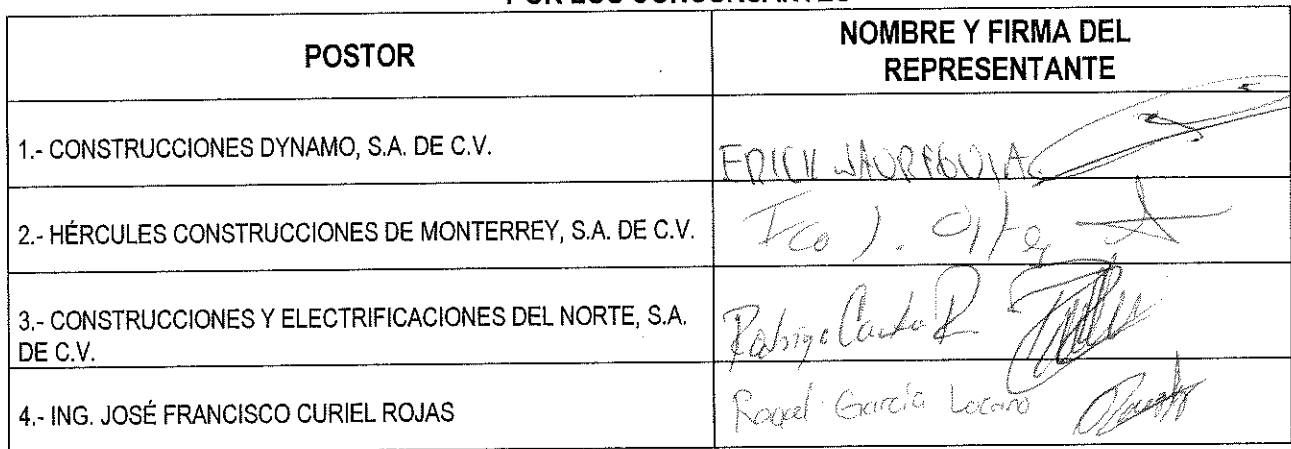 POR LOS CONCURSANTES
POSTOR
NOMBRE Y FIRMA DEL
REPRESENTANTE
1.- CONSTRUCCIONES DYNAMO, S.A. DE C.V.
ERICK JAUREGUI A
2.- HÉRCULES CONSTRUCCIONES DE MONTERREY, S.A. DE C.V.
Fco J.
3.- CONSTRUCCIONES Y ELECTRIFICACIONES DEL NORTE, S.A.
DE C.V.
Rodrigo Cantu R
4.- ING. JOSÉ FRANCISCO CURIEL ROJAS
Raquel García Lozano